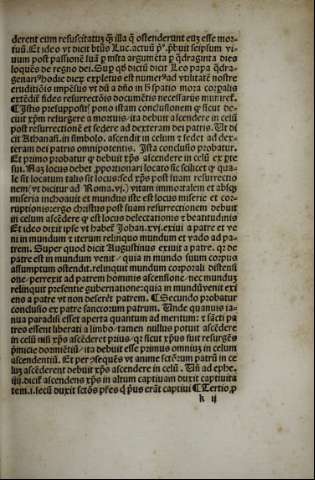 derent eum resuscitatuȝ qȝ illa q̃ ostenderunt euȝ esse mor
tuũ. Et ideo vt dicit btũs Luc. actuũ pº. p̃buit seipsum vi
uum post passionẽ suã ꝑ m̃lta argumẽta ꝑ q̃draginta dies
loquẽs de regno dei. Sup qº dictũ dicit Leo papa q̃dra-
genariº hodie dieꝝ expletus est numerº ad vtilitatẽ nostre
eruditiõis impẽsus vt dũ a dño in hº spatio mora corꝑalis
extẽdit̃ fides resurrectiõis documẽtis necessariis muniret̃.
¶ Istis presuppositȝ pono istam conclusionem qº sicut de-
cuit xp̃m resurgere a mortuis / ita debuit ascendere in celũ
post resurrectionẽ et sedere ad dexteram dei patris. Vt di
cit Athanasiº. in simbolo. ascendit in celum ⁊ sedet ad dex-
teram dei patris omnipotentis. Ista conclusio probatur.
Et primo probatur qº debuit xp̃s ascendere in celũ ex ꝑte
sui. Naȝ locus debet ꝓportionari locato sic scilicet qº qua-
le sit locatum talis sit locus: sed xp̃s post suam resurrectio
nem (vt dicitur ad Roma. vi.) vitam immortalem et absqȝ
miseria inchoauit et mundus iste est locus miserie et cor-
ruptionis: ergo christus post suam resurrectionem debuit
in celum ascẽdere qº est locus delectationis ⁊ beatitudinis
Et ideo dixit ipse vt habet̃ Johan. xvj. exiui a patre et ve
ni in mundum ⁊ iterum relinquo mundum et vado ad pa-
trem. Super quod dicit Augustinus exiuit a patre. qº de
patre est in mundum venit / quia in mundo suum corpus
assumptum ostendit. relinquit mundum corporali disteni
one. perrexit ad patrem hominis ascensione / nec munduȝ
relinquit presentie gubernatione: quia in mundũ venit exi
ens a patre vt non deserẽt patrem. ¶ Secundo probatur
conclusio ex patre sanctorum patrum. Unde quamuis ia-
nua paradisi esset aperta quantum ad meritum: ⁊ sãcti pa
tres essent liberati a limbo / tamen nullus potuit ascẽdere
in celũ nisi xp̃s ascẽderet prius / qȝ sicut xp̃us fuit resurgẽs
p̃mitie dormiẽtiũ / ita debuit esse primus omniuȝ in celum
ascendentiũ. Et per ꝯsequẽs vt anime sctõrum patrũ in ce
luȝ ascẽderent debuit xp̃s ascendere in celũ. Vñ ad ephe.
iiij. dicit̃ ascendens xp̃s in altum captiuam duxit captiuita
tem. i. secũ duxit sctõs pr̃es q̃ priº erãt captiui ¶ Tertio. ꝓ
k ij